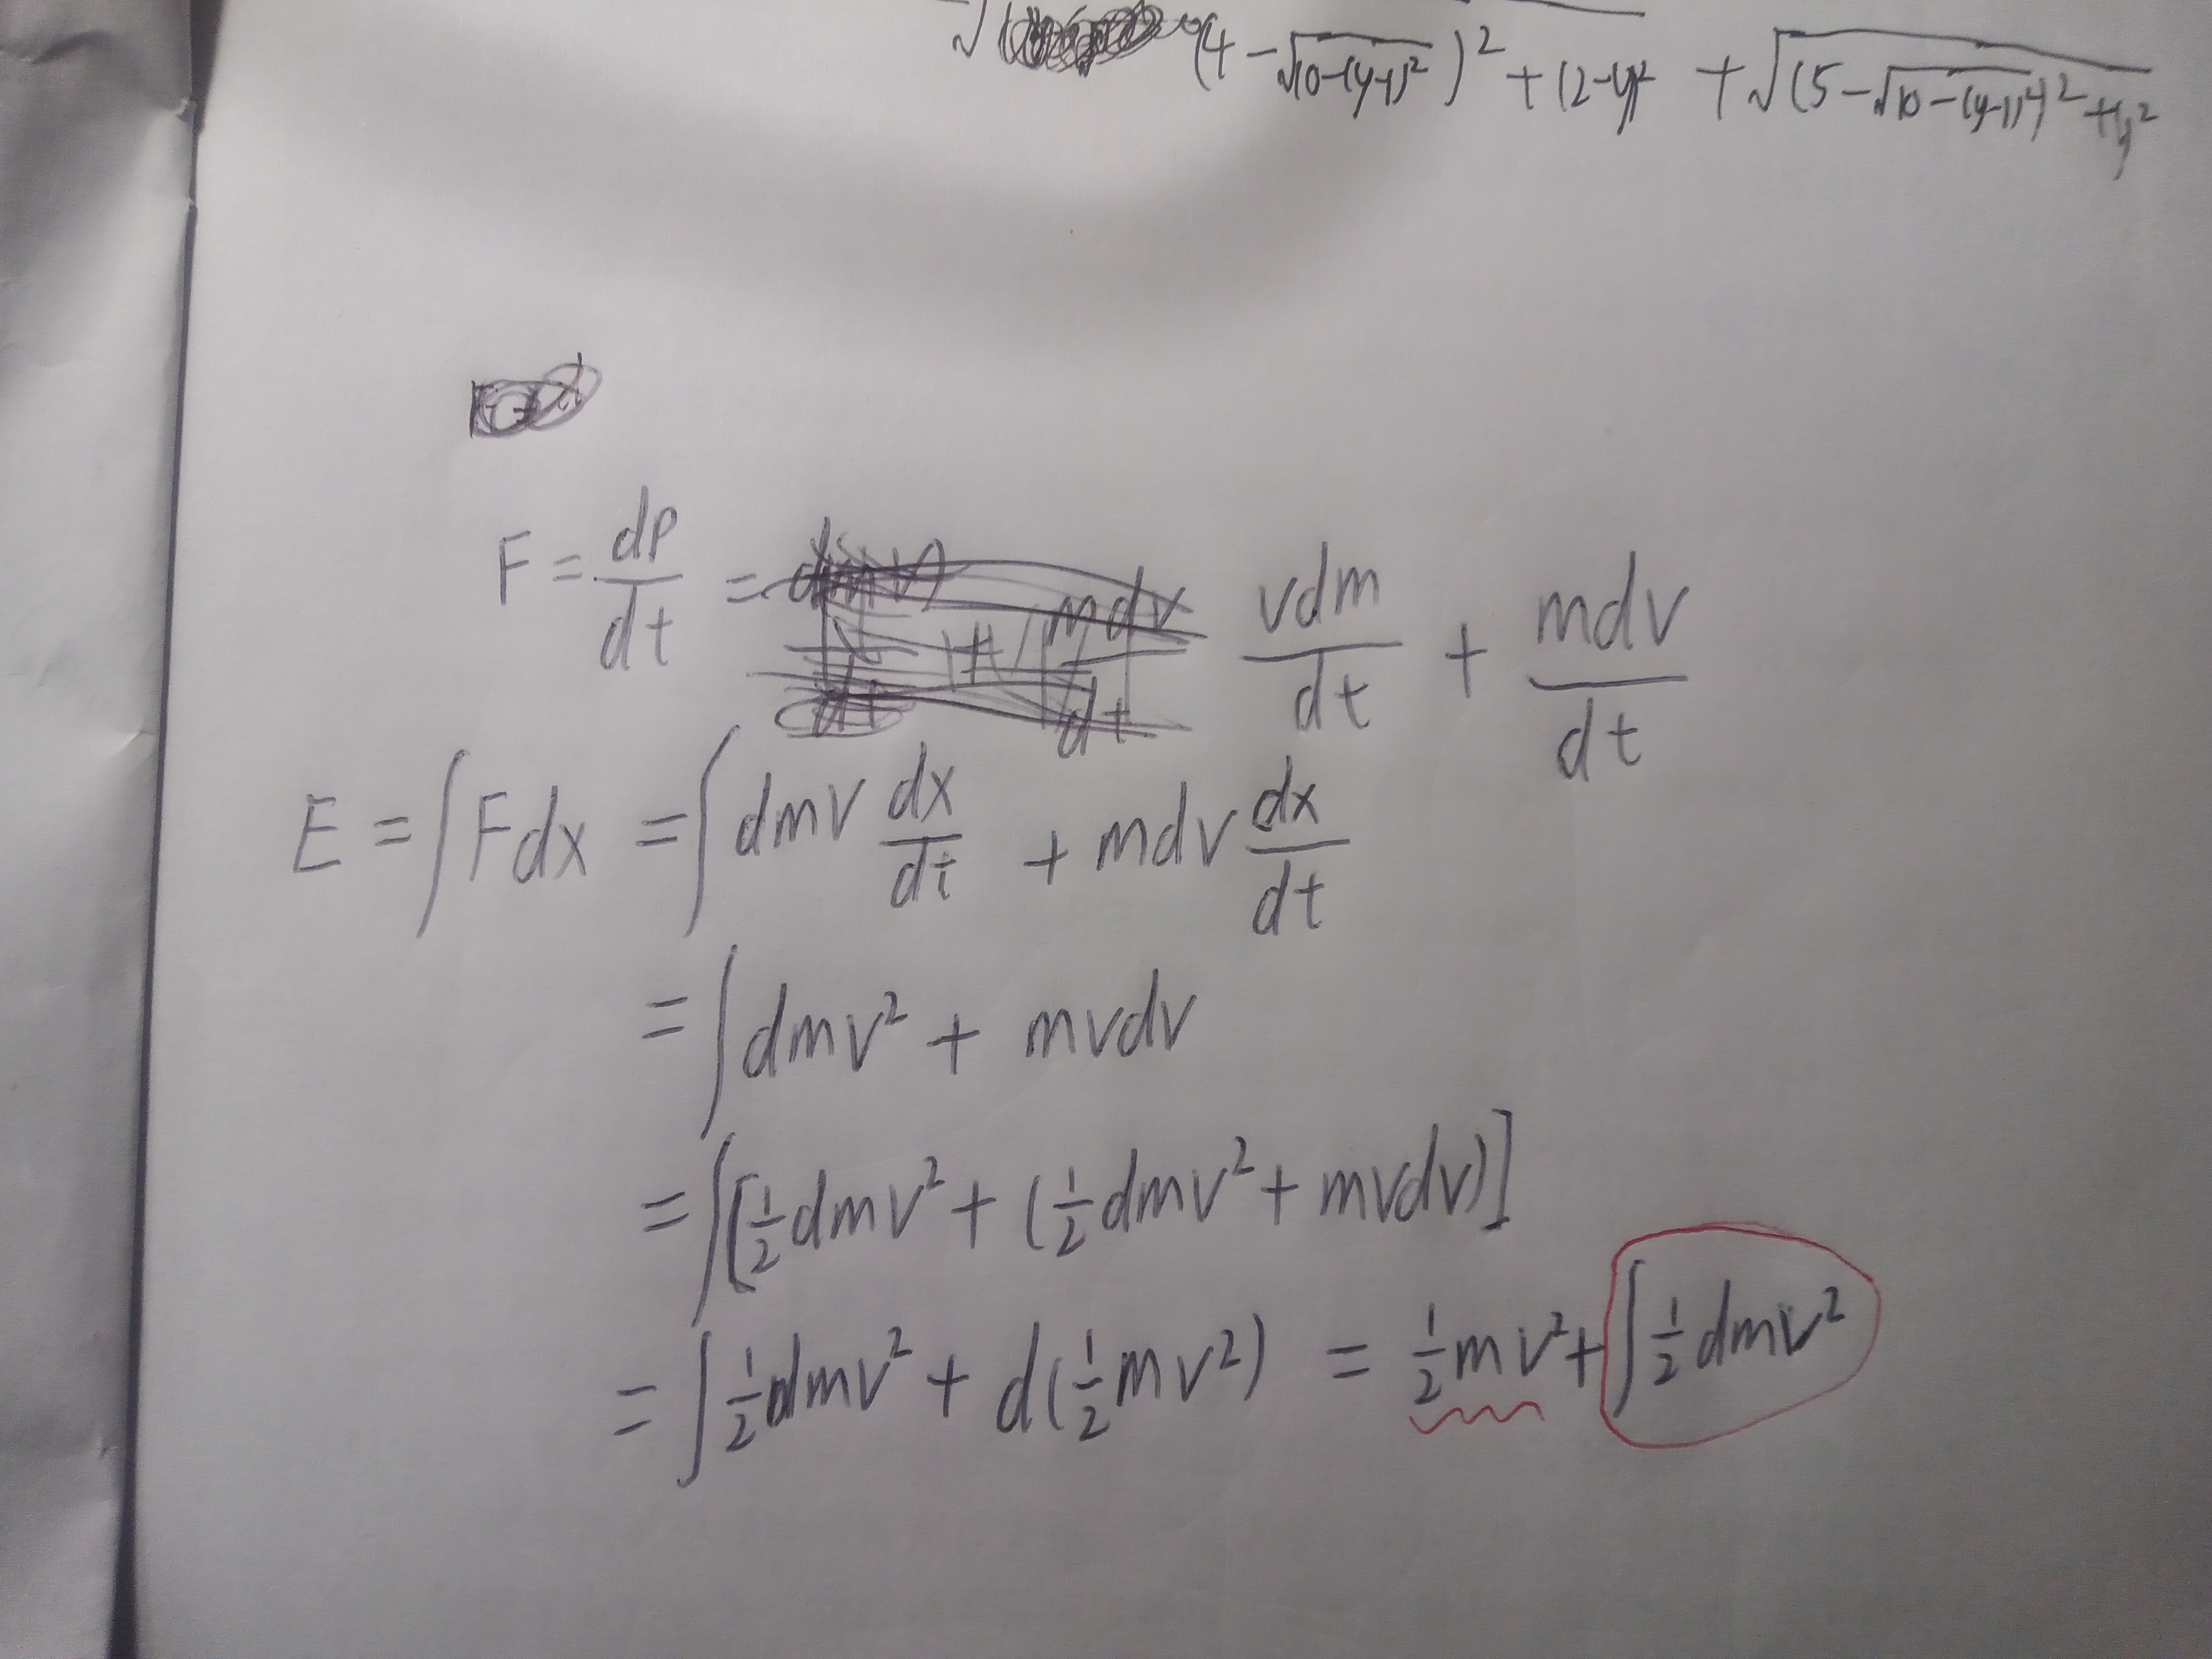 √ (4-√10-(y-1)²)² + (2-y)² + √(5-√10-(y-1)²)² + y²
F = dp/dt = vdm/dt + mdv/dt
E = ∫Fdx = ∫dmv dx/dt + mdv dx/dt
= ∫dmv² + mvdv
= ∫[½dmv² + (½dmv² + mvdv)]
= ∫½dmv² + d(½mv²) = ½mv² + ∫½dmv²